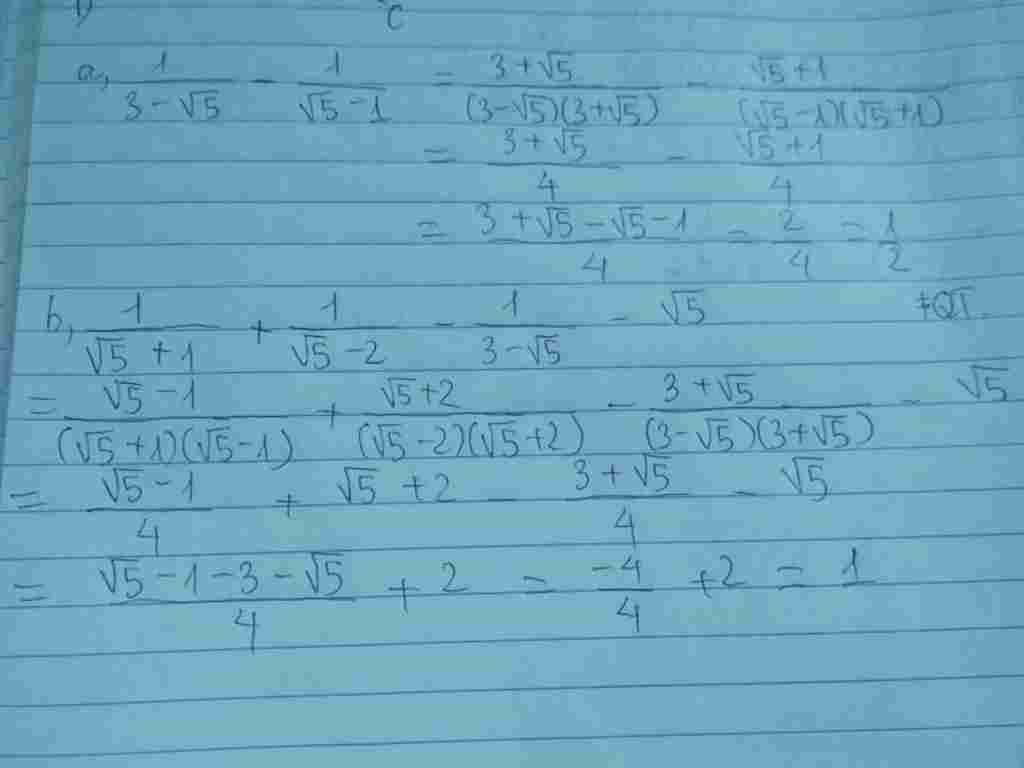 c
a, 1/(3-√5) - 1/(√5-1) = (3+√5)/((3-√5)(3+√5)) - (√5+1)/((√5-1)(√5+1))
= (3+√5)/4 - (√5+1)/4
= (3+√5-√5-1)/4 = 2/4 = 1/2
b, 1/(√5+1) + 1/(√5-2) - 1/(3-√5) - √5
= (√5-1)/((√5+1)(√5-1)) + (√5+2)/((√5-2)(√5+2)) - (3+√5)/((3-√5)(3+√5)) - √5
= (√5-1)/4 + √5+2 - (3+√5)/4 - √5
= (√5-1-3-√5)/4 + 2 = -4/4 + 2 = 1